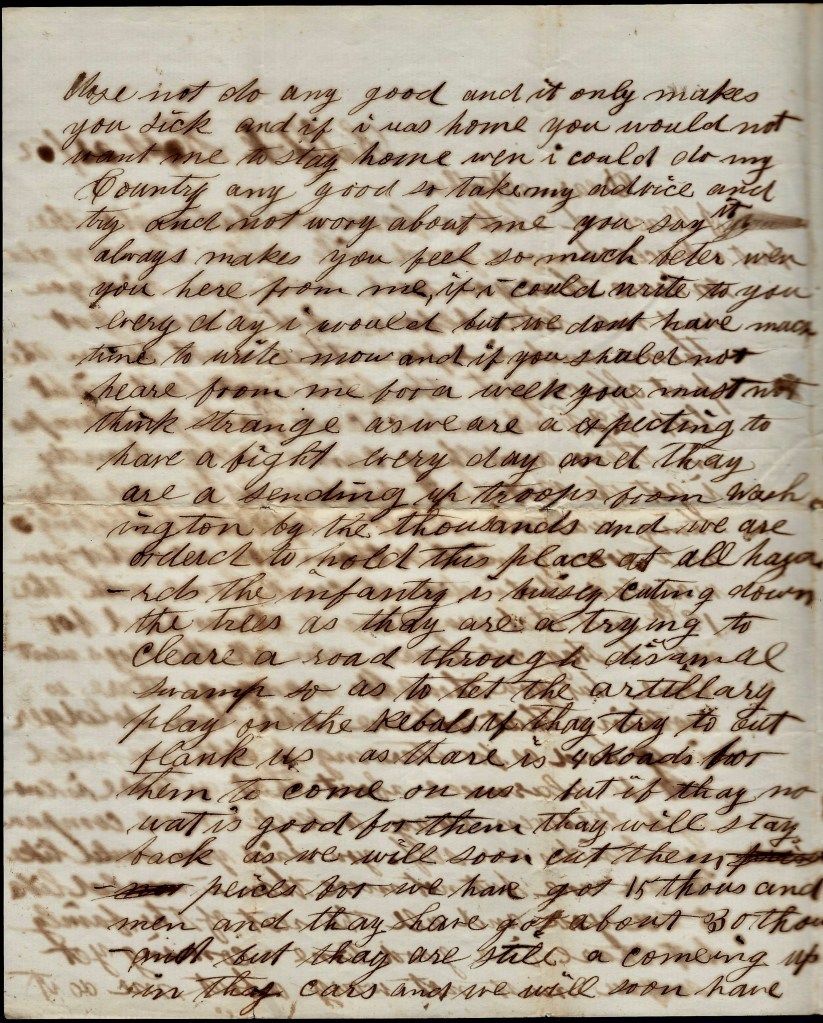 does not do any good and it only makes
you sick and if i was home you would not
want me to stay home wen i could do my
Country any good so take my advice and
try and not wory about me you say it
always makes you feel so much beter wen
you here from me, if i could write to you
every day i would but we dont have much
time to write now and if you shuld not
heare from me for a week you must not
think strange as we are a expecting to
have a fight every day and thay
are a sending up troops from Wash
ington by the thousands and we are
orderd to hold this place at all haza
-rds the infantry is buisey cuting down
the trees as thay are a trying to
cleare a road through dismal
swamp so as to let the artillary
play on the Rebals if thay try to out
flank us as thare is 4 Roads for
them to come on us but if thay no
wat is good for them thay will stay
back as we will soon cut them
peices for we have got 15 thousand
men and thay have got about 30 thou
-and but thay are still a comeing up
in thay cars and we will soon have